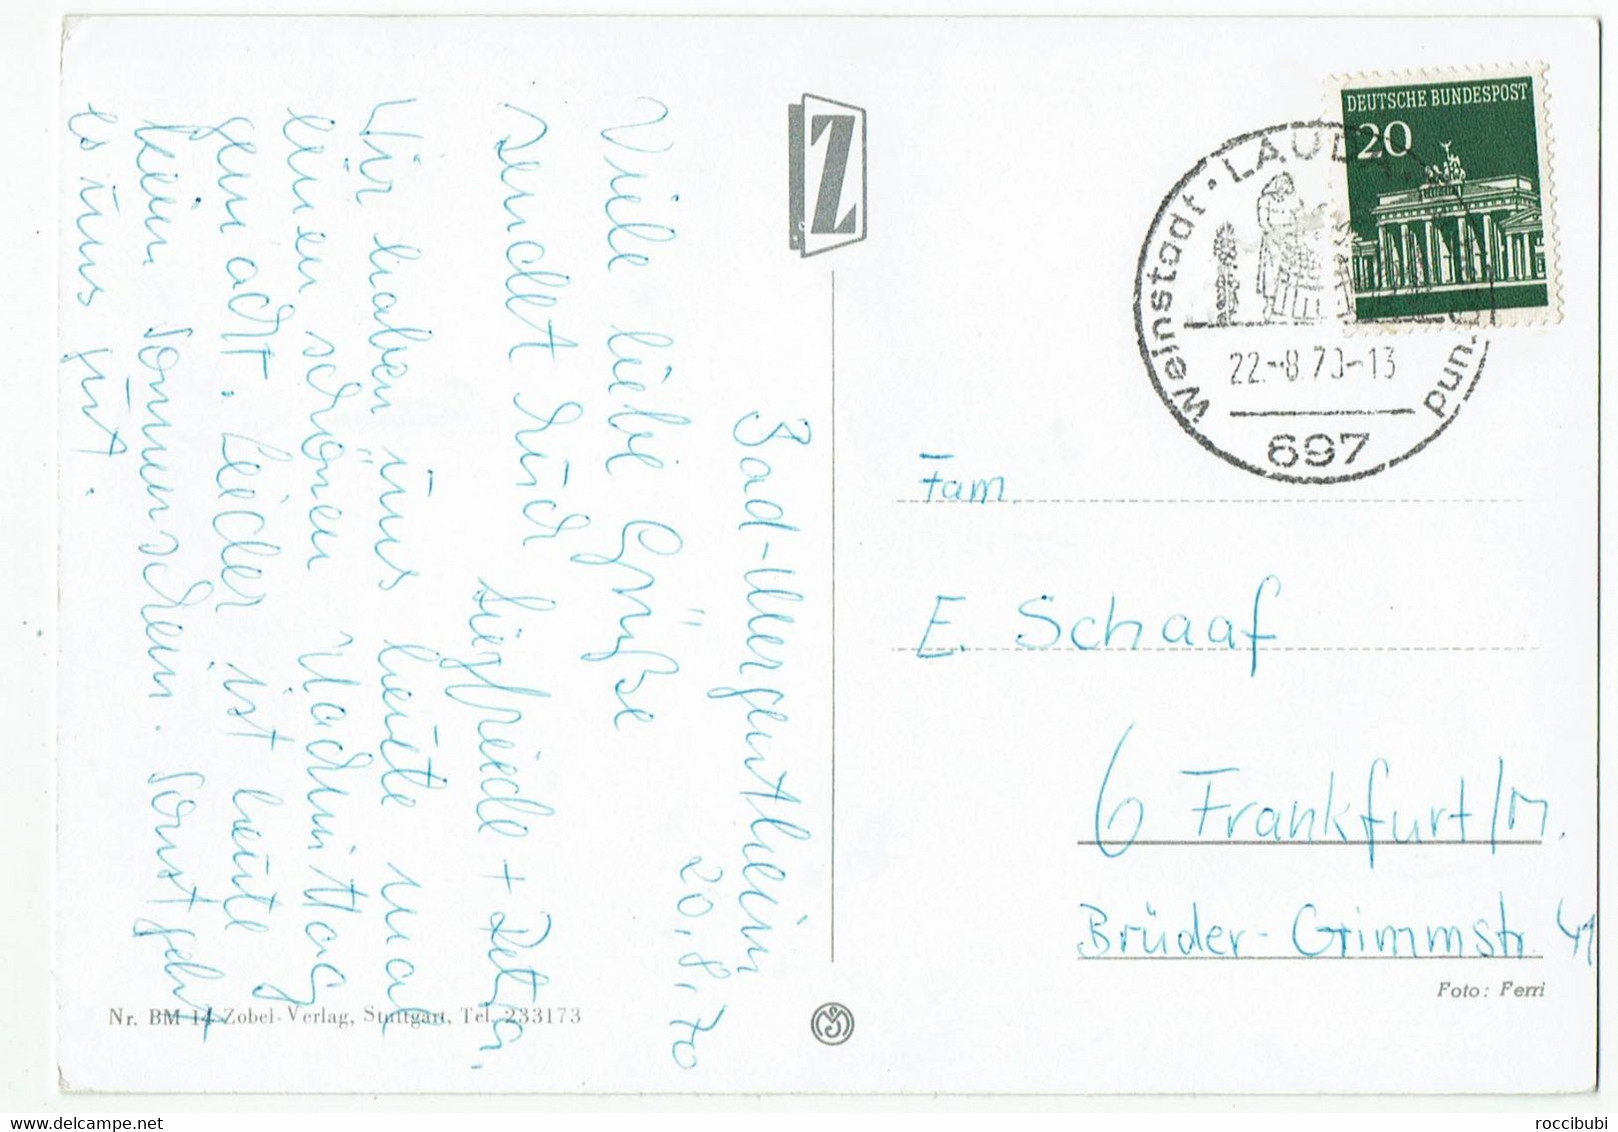 Bad-Mergentheim
20.8.70
Viele liebe Grüße
sendet Euch
Siegfriede + Peter.
Wir haben uns heute mal
einen schönen Nachmittag
gemacht. Leider ist heute
kein Sonnenschein. Sonst geht
es uns gut.
Nr. BM 14 Zobel-Verlag, Stuttgart, Tel. 233173
Z
DEUTSCHE BUNDESPOST
20
Weinstadt · LAUDA
22.-8.70-13
697
Fam.
E. Schaaf
6 Frankfurt/M.
Brüder-Grimmstr. 41
Foto: Ferri
roccibubi